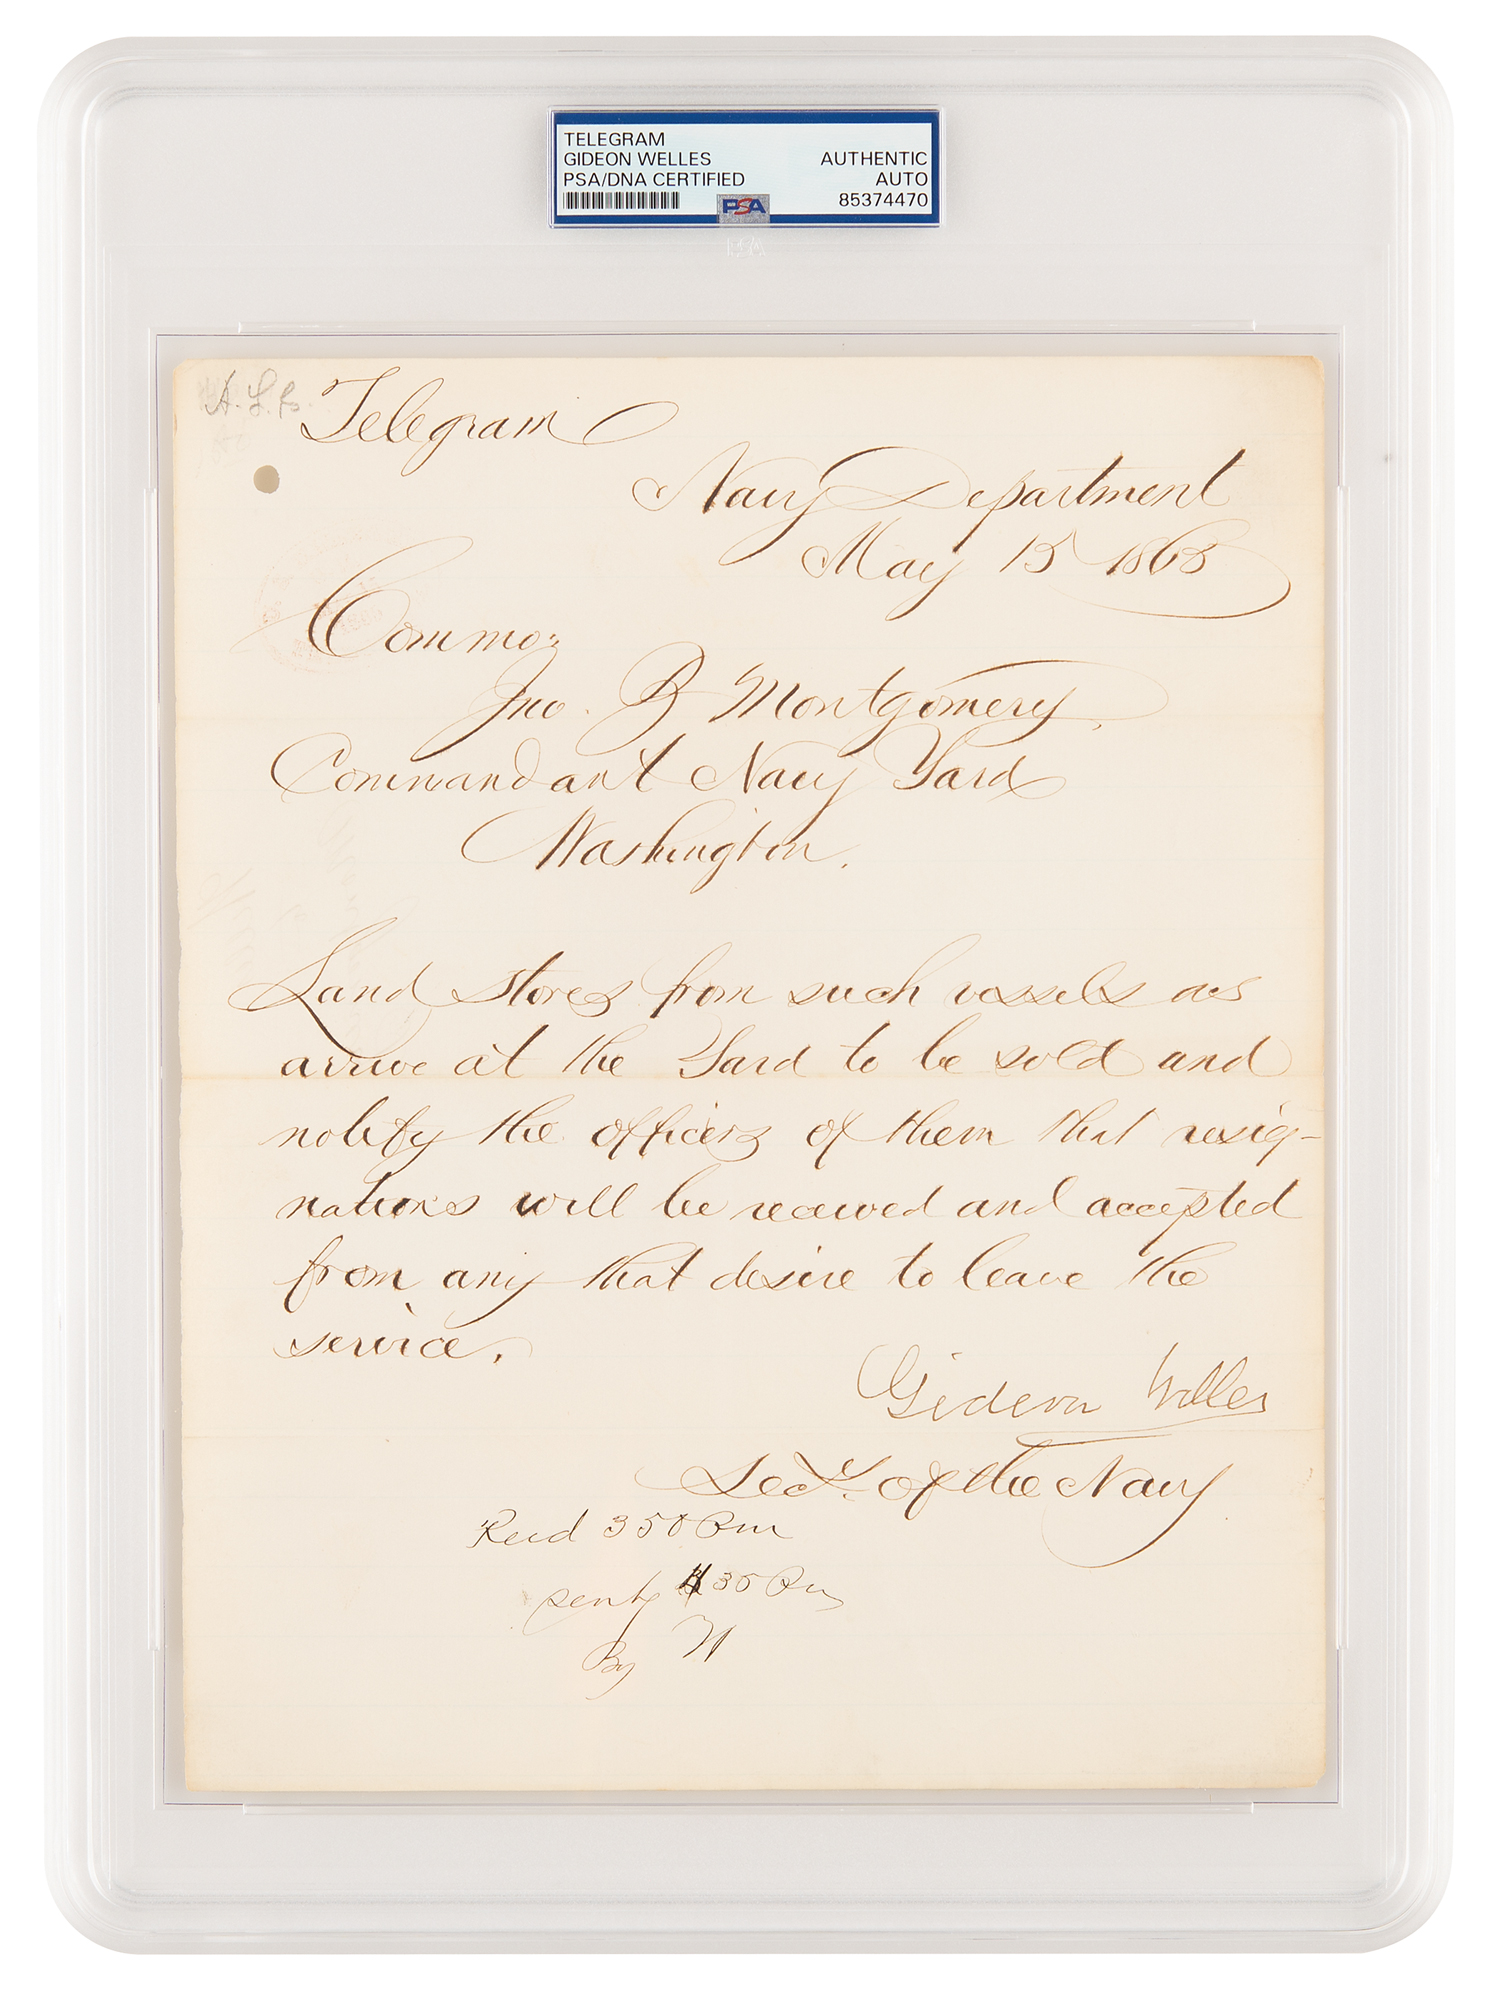 TELEGRAM
GIDEON WELLES AUTHENTIC
PSA/DNA CERTIFIED AUTO
PSA 85374470
PSA
Telegram
Navy Department
May 15 1865
Commo:
Jno. B Montgomery,
Commandant Navy Yard
Washington.
Land stores from such vessels as
arrive at the Yard to be sold and
notify the officers of them that resig-
nations will be received and accepted
from any that desire to leave the
service.
Gideon Welles
Secy. of the Navy
Recd 350 Pm
sent 435 Pm
By W